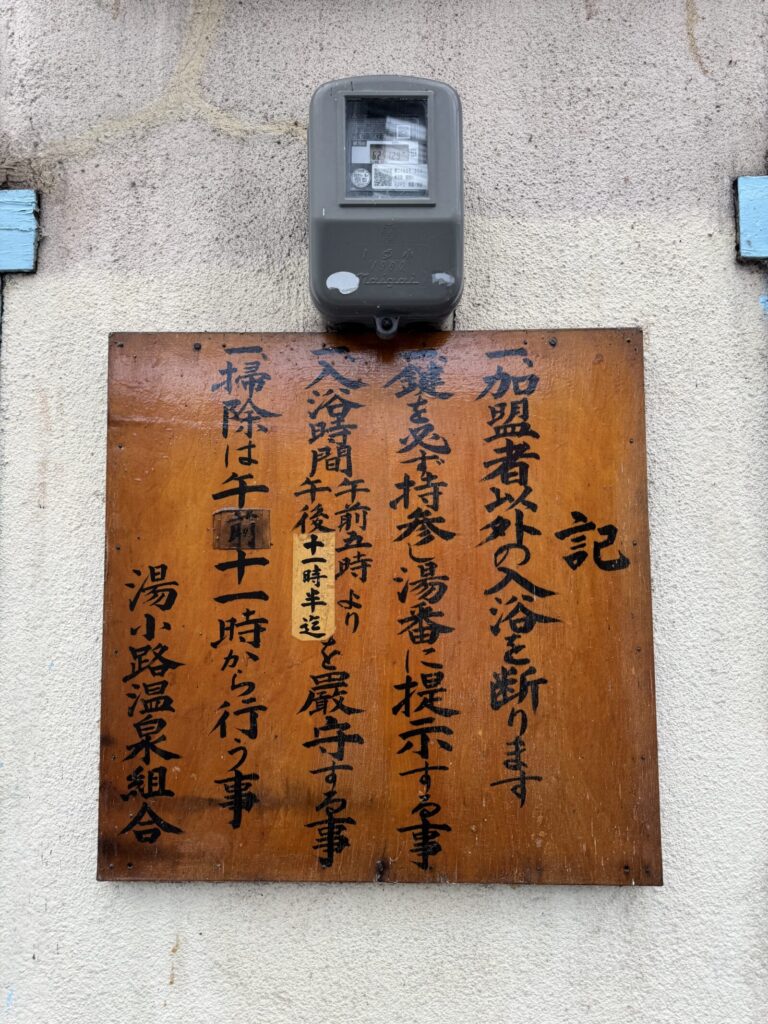 記
一、加盟者以外の入浴を断ります
一、鍵を必ず持参し湯番に提示する事
一、入浴時間午前五時より午後十一時半迄を厳守する事
一、掃除は午前十一時から行う事
湯小路温泉組合